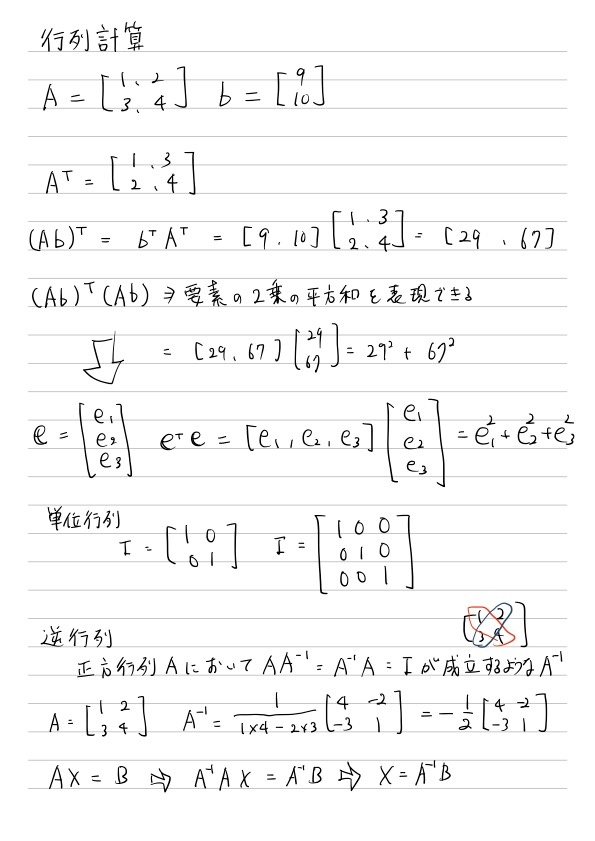 行列計算
A = [1, 2; 3, 4] b = [9; 10]
Aᵀ = [1, 3; 2, 4]
(Ab)ᵀ = bᵀAᵀ = [9, 10] [1, 3; 2, 4] = [29, 67]
(Ab)ᵀ(Ab) ⇒ 要素の2乗の平方和を表現できる
= [29, 67] [29; 67] = 29² + 67²
e = [e₁; e₂; e₃] eᵀe = [e₁, e₂, e₃] [e₁; e₂; e₃] = e₁² + e₂² + e₃²
単位行列
I = [1 0; 0 1] I = [1 0 0; 0 1 0; 0 0 1]
[1 2; 3 4]
逆行列
正方行列Aにおいて AA⁻¹ = A⁻¹A = Iが成立するようなA⁻¹
A = [1 2; 3 4] A⁻¹ = 1/(1×4 - 2×3) [4 -2; -3 1] = -1/2 [4 -2; -3 1]
AX = B ⇒ A⁻¹AX = A⁻¹B ⇒ X = A⁻¹B